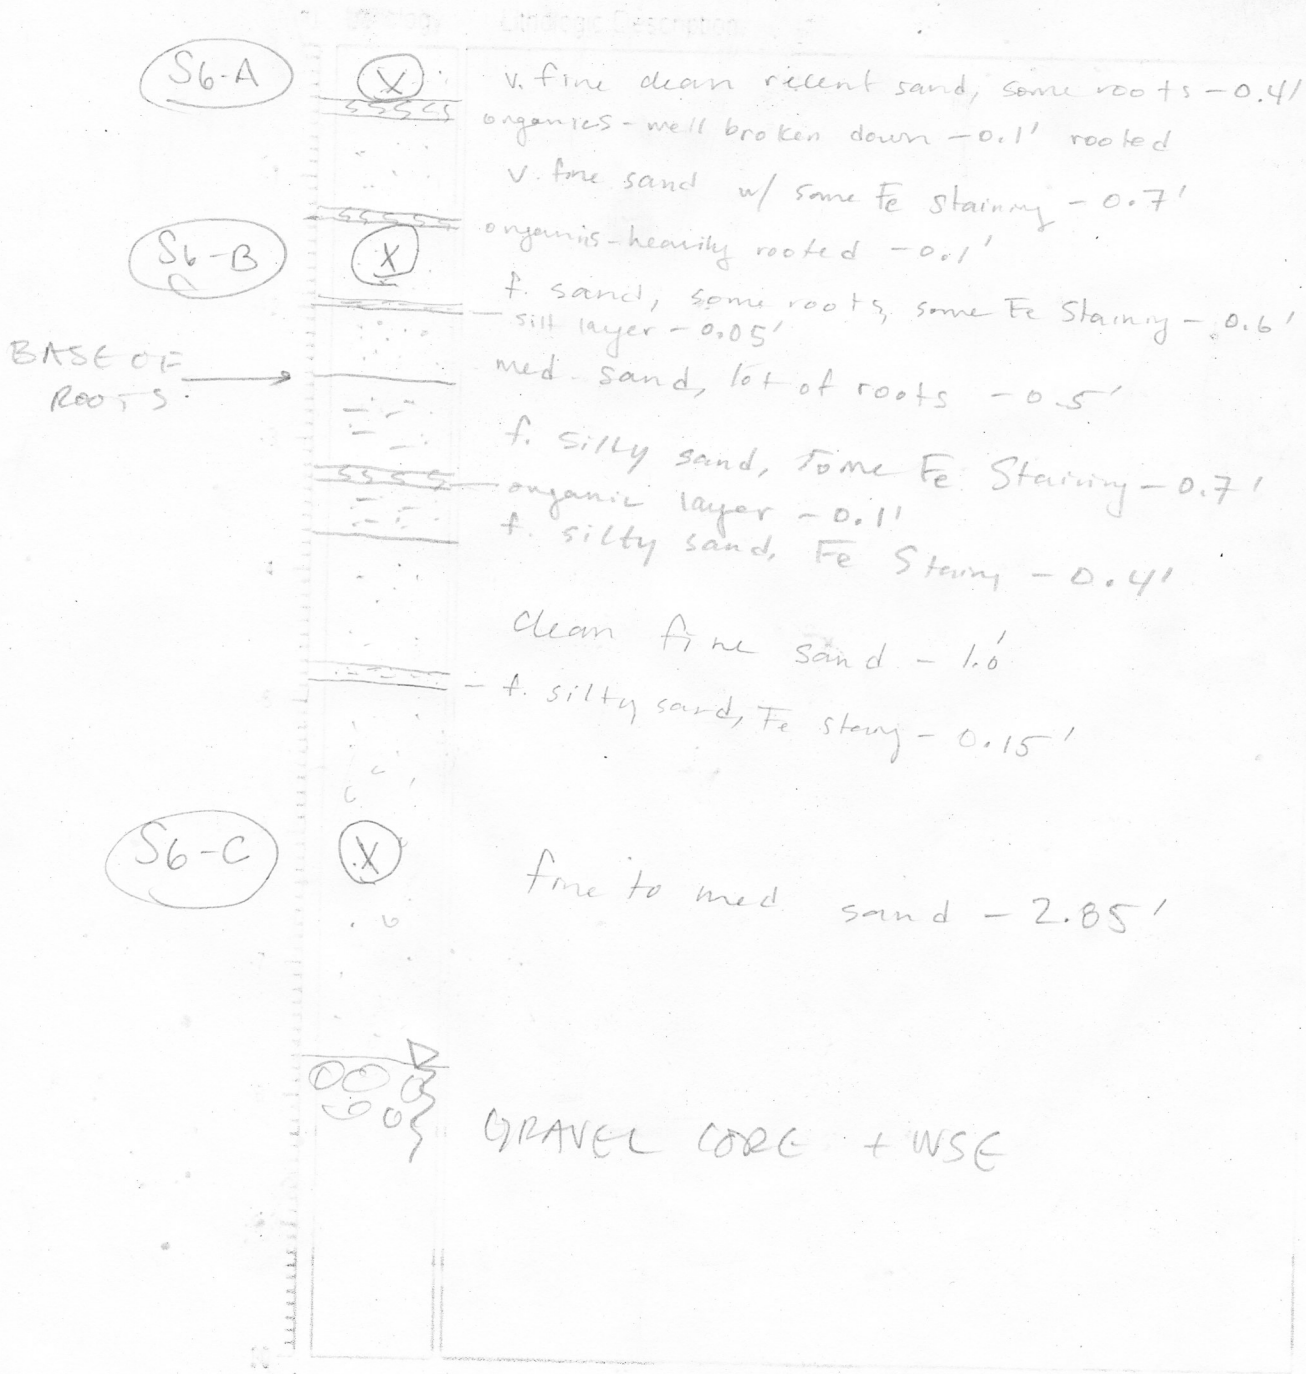 Lithologic Description
S6-A
X
v. fine clean recent sand, some roots - 0.4'
organics - well broken down - 0.1' rooted
v. fine sand w/ some Fe Staining - 0.7'
organics - heavily rooted - 0.1'
S6-B
X
f. sand, some roots, some Fe Staining - 0.6'
silt layer - 0.05'
BASE OF
ROOTS
med. sand, lot of roots - 0.5'
f. silty sand, some Fe Staining - 0.7'
organic layer - 0.1'
f. silty sand, Fe Staining - 0.4'
clean fine sand - 1.0'
f. silty sand, Fe staing - 0.15'
S6-C
X
fine to med sand - 2.85'
GRAVEL CORE + WSE